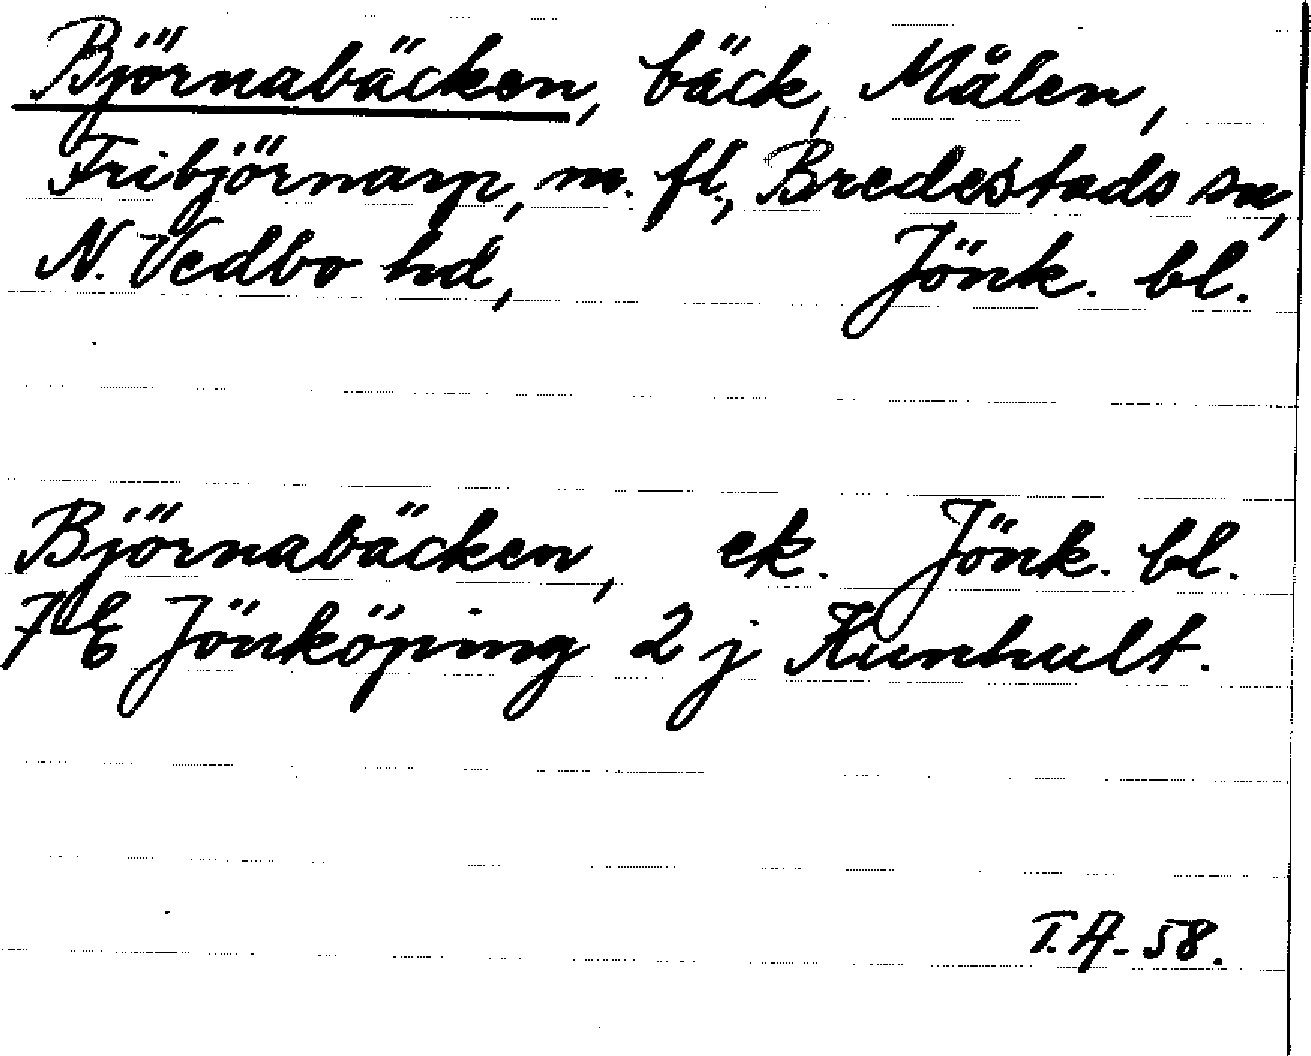 Björnabäcken, bäck, Målen,
Fribjörnarp, m. fl., Bredestads sn,
N. Vedbo hd, Jönk. bl.
Björnabäcken, ek. Jönk. bl.
7 E Jönköping 2 j Hunhult.
T. A- 58.